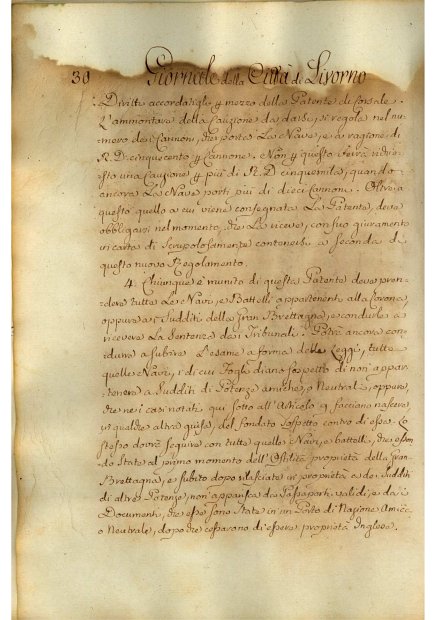 30 Giornale della Città di Livorno
Diritti accordatigli p mezzo della Patente di Corsale.
L'ammontare della Cauzione da darsi, si regola nel nu-
mero de i Cannoni, che porta la Nave, e a ragione di
R. D. cinquecento p Cannone. Non p questo sarà richi-
esto una Cauzione p più di R. D. cinquemila, quando
ancora La Nave porti più di dieci Cannoni. Oltre a
questo quello a cui viene consegnata La Patente, deve
obbligarsi nel momento, che La riceve, con suo giuramento
in carta di scrupolosamente contenersi a seconda di
questo nuovo Regolamento.
4. Chiunque è munito di questa Patente deve pren-
dere tutte Le Navi, e Battelli appartenenti alla Corona,
oppure a i Sudditi della Gran Brettagna, e condurle a
ricevere La Sentenza da i Tribunali. Potrà ancora con-
durre a subire L'esame a forma delle Leggi, tutte
quelle Navi, i di cui Fogli diano sospetto di non appar-
tenere a Sudditi di Potenze amiche, o Neutrali, oppure,
che ne i casi notati qui sotto all'Articolo 9 facciano nascere,
in qualche altra guisa, del fondato sospetto contro di esse. Lo
stesso dovrà seguire con tutte quelle Navi, e battelli, che essen-
do state al primo momento dell'Ostilità proprietà della Gran
Brettagna, e subito dopo rilasciate in proprietà a dei Sudditi
di altre Potenze, non apparisca da Passaporti validi, e da i
Documenti, che esse sono state in un Porto di Nazione Amica,
o Neutrale, dopo che cessarono di essere proprietà Inglese.